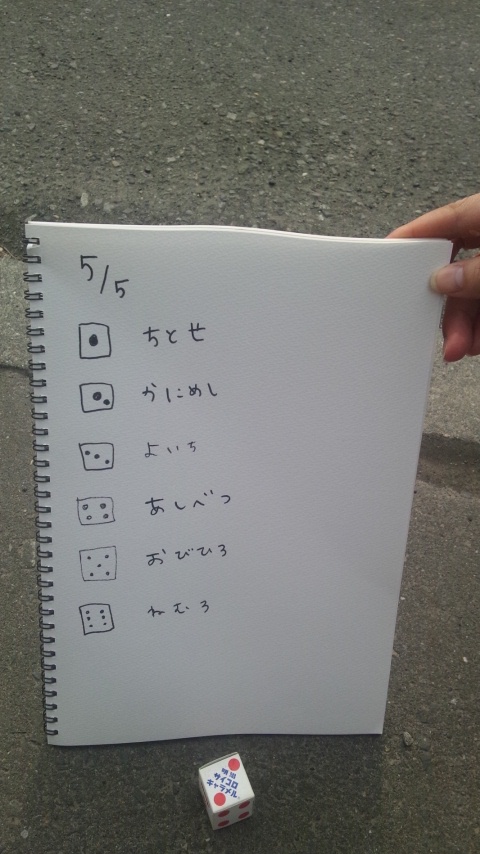 5/5
ちとせ
かにめし
よいち
あしべつ
おびひろ
ねむろ
明治
サイコロ
キャラメル